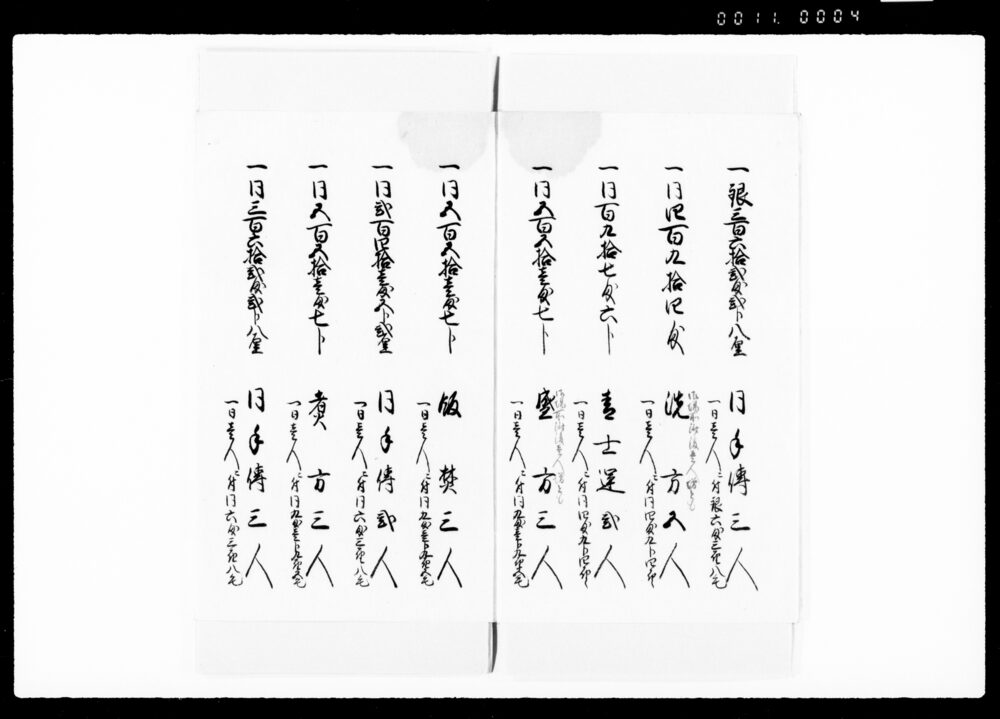 0011 0004
一銀三百六拾弐匁弐分八厘
同手傳三人
一日壱人ニ付銀六匁三厘八毛
一同四百九拾四匁
洗方五人
一日壱人ニ付同四匁九分四厘
一同百九拾七匁六分
青士選弐人
一日壱人ニ付同四匁九分四厘
一同五百五拾壱匁七分
盛方三人
一日壱人ニ付同九匁壱分九厘五毛
一同五百五拾壱匁七分
飯焚三人
一日壱人ニ付同九匁壱分九厘五毛
一同弐百四拾壱匁五分弐厘
同手傳弐人
一日壱人ニ付同六匁三厘八毛
一同五百五拾壱匁七分
煮方三人
一日壱人ニ付同九匁壱分九厘五毛
一同三百六拾弐匁弐分八厘
同手傳三人
一日壱人ニ付同六匁三厘八毛